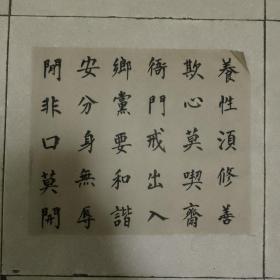 養性須修善
欺心莫喫齋
衙門戒出入
鄉黨要和諧
安分身無辱
閒非口莫開